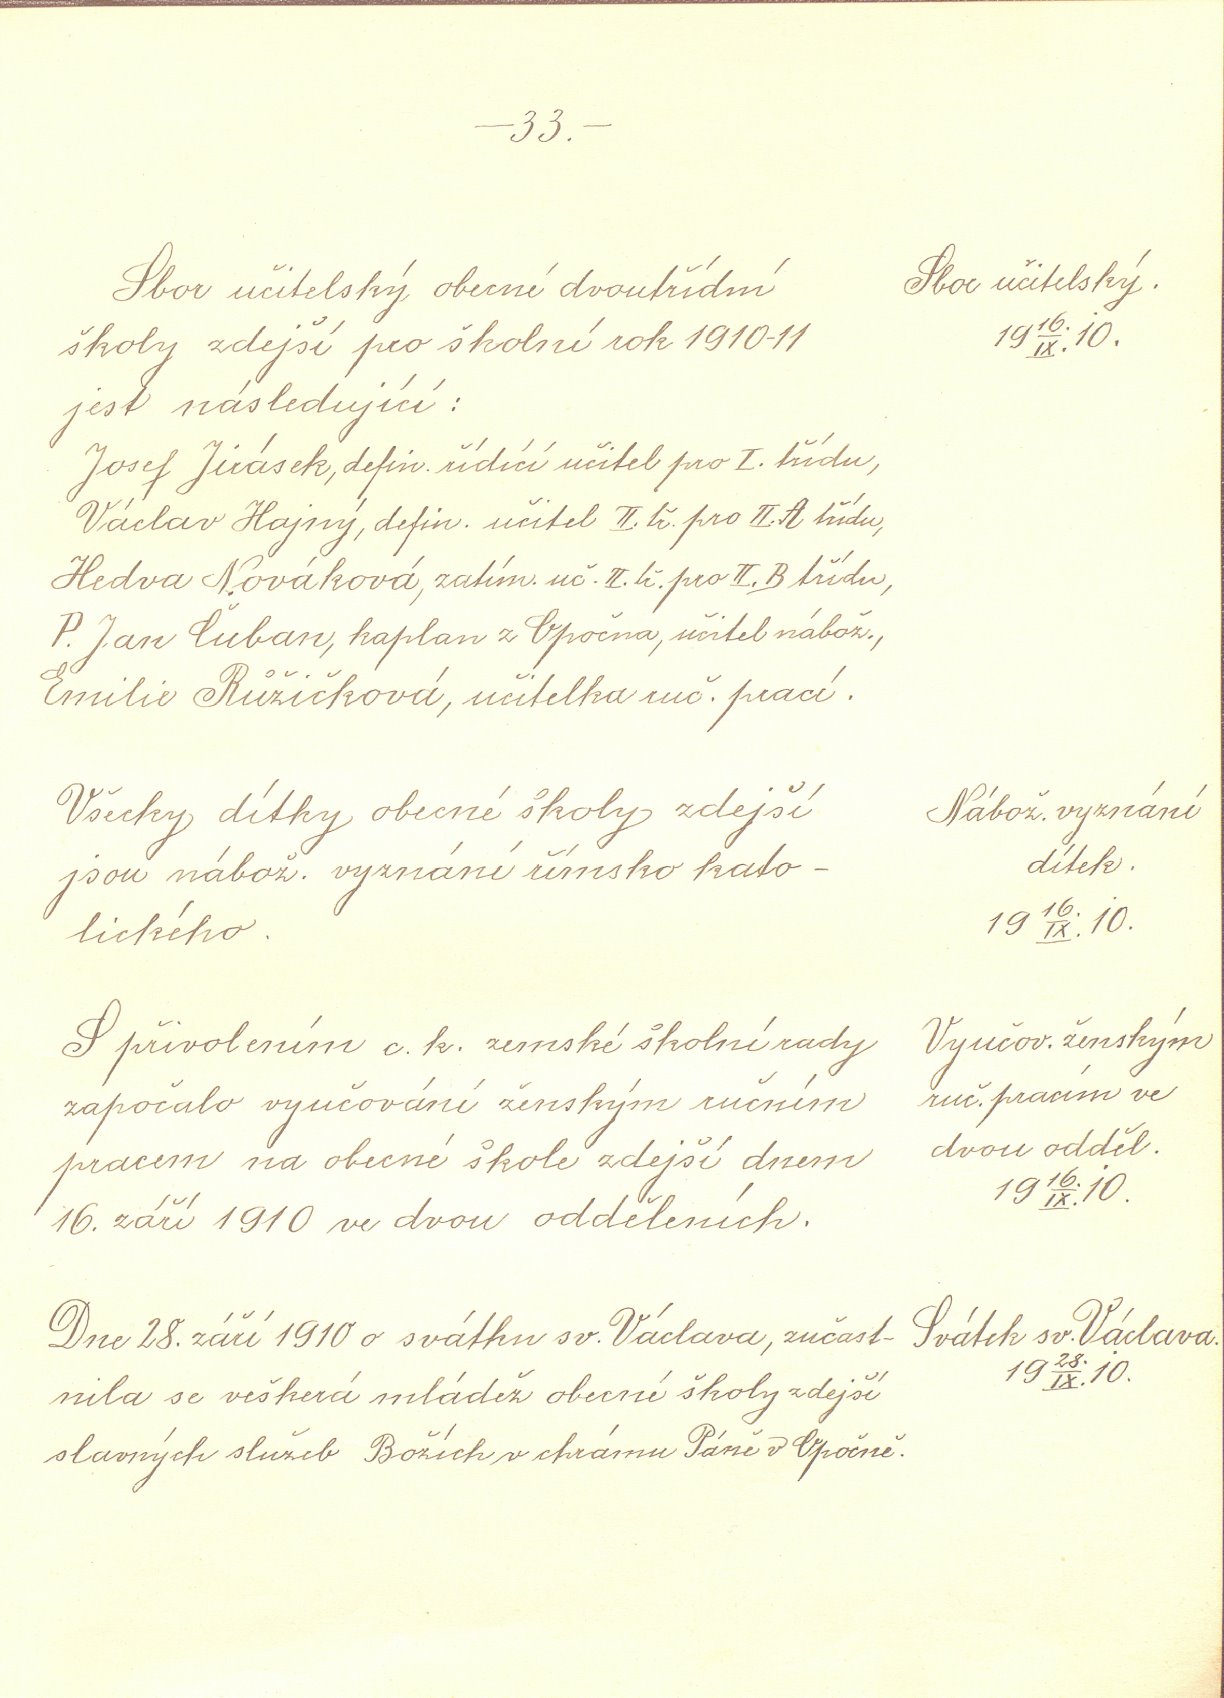 —33.—
Sbor učitelský obecné dvoutřídní
školy zdejší pro školní rok 1910-11
jest následující:
Josef Jirásek, defin. řídící učitel pro I. třídu,
Václav Hajný, defin. učitel II. tř. pro II. A třídu,
Hedva Nováková, zatím. uč. II. tř. pro II. B třídu,
P. Jan Čuban, kaplan z Opočna, učitel nábož.,
Emilie Růžičková, učitelka ruč. prací.
Sbor učitelský.
19 16./IX. 10.
Všecky dítky obecné školy zdejší
jsou nábož. vyznání římsko kato-
lického.
Nábož. vyznání
dítek.
19 16./IX. 10.
S přivolením c. k. zemské školní rady
započalo vyučování ženským ručním
pracem na obecné škole zdejší dnem
16. září 1910 ve dvou odděleních.
Vyučov. ženským
ruč. pracím ve
dvou odděl.
19 16./IX. 10.
Dne 28. září 1910 o svátku sv. Václava, zúčast-
nila se veškerá mládež obecné školy zdejší
slavných služeb Božích v chrámu Páně v Opočně.
Svátek sv. Václava.
19 28./IX. 10.